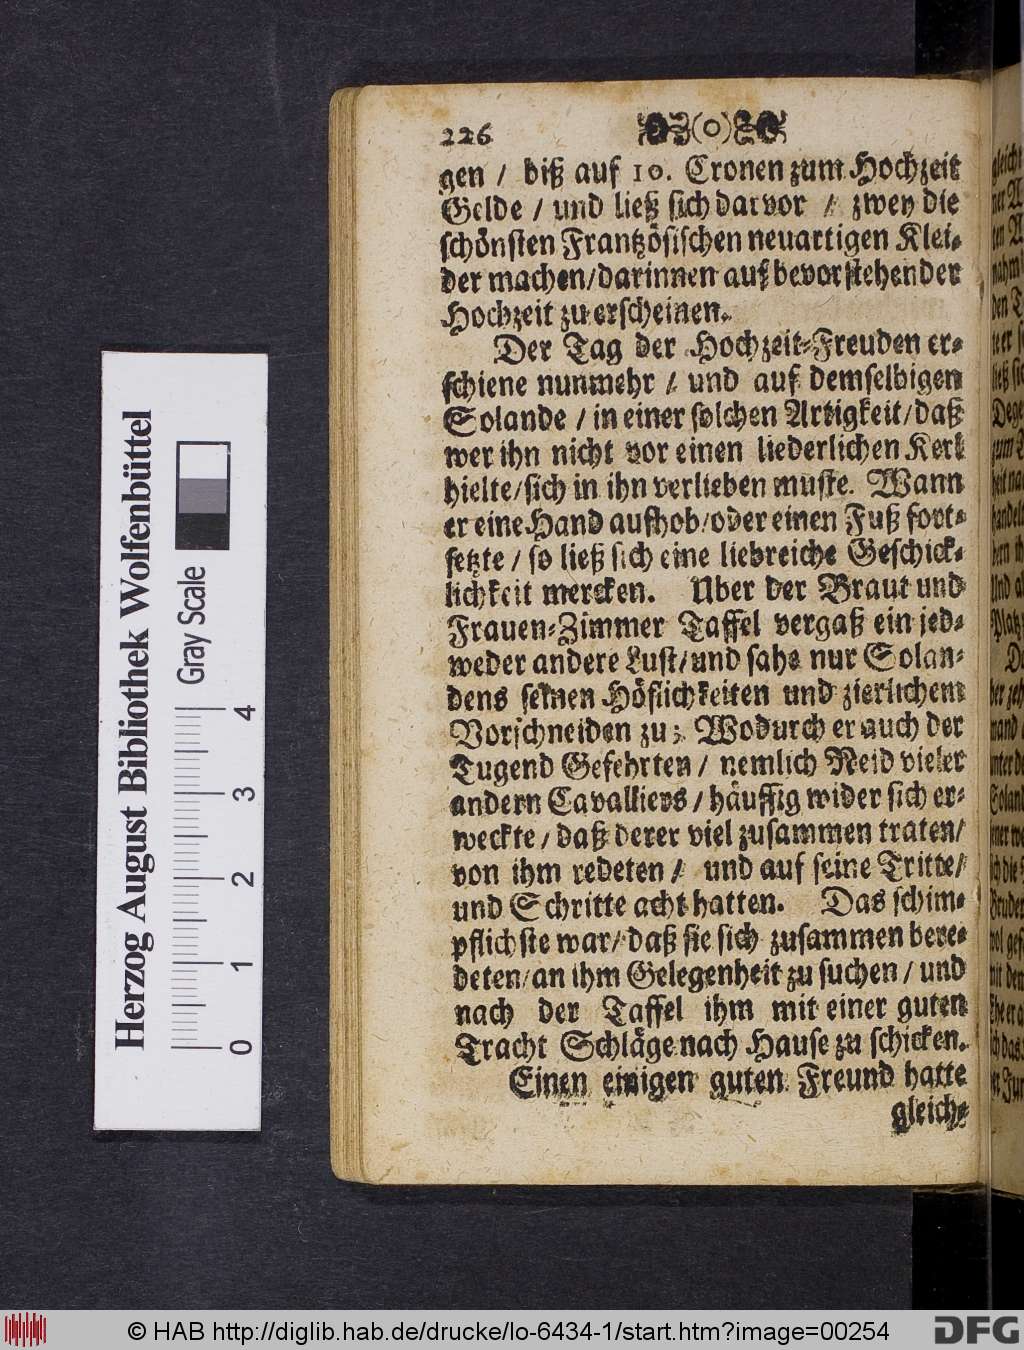 226 (o)
gen / biß auf 10. Cronen zum Hochzeit
Gelde / und ließ sich darvor / zwey die
schönsten Frantzösischen neuartigen Klei-
der machen/darinnen auf bevorstehender
Hochzeit zu erscheinen.
Der Tag der Hochzeit-Freuden er-
schiene nunmehr / und auf demselbigen
Solande / in einer solchen Artigkeit/daß
wer ihn nicht vor einen liederlichen Kerl
hielte/sich in ihn verlieben muste. Wann
er eine Hand aufhob/oder einen Fuß fort-
setzte / so ließ sich eine liebreiche Geschick-
lichkeit mercken. Uber der Braut und
Frauen-Zimmer Taffel vergaß ein jed-
weder andere Lust/und sahe nur Solan-
dens seinen Höflichkeiten und zierlichem
Vorschneiden zu; Wodurch er auch der
Tugend Gefehrten / nemlich Neid vieler
andern Cavalliers / häuffig wider sich er-
weckte / daß derer viel zusammen traten/
von ihm redeten / und auf seine Tritte/
und Schritte acht hatten. Das schim-
pflichste war/ daß sie sich zusammen bere-
deten/an ihm Gelegenheit zu suchen / und
nach der Taffel ihm mit einer guten
Tracht Schläge nach Hause zu schicken.
Einen einigen guten Freund hatte
gleich-
Herzog August Bibliothek Wolfenbüttel
Gray Scale
0 1 2 3 4
© HAB http://diglib.hab.de/drucke/lo-6434-1/start.htm?image=00254
DFG